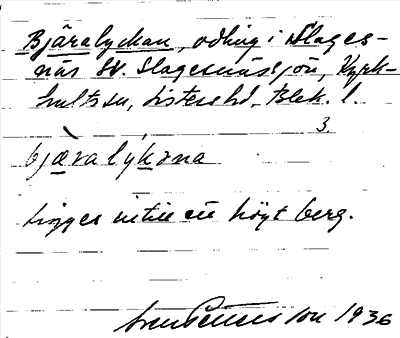 Bjäralyckan, odling i Slages-
näs St. Slagesnässjön, Kyrk-
hults sn, Listers hd, Blek. l.
3.
bjæralykəna
Ligger intill ett högt berg.
Sven Pettersson 1936